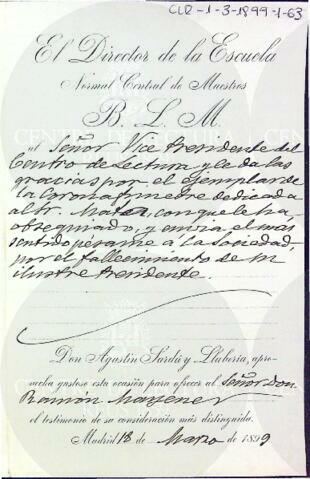 CLR-1-3-1899-1-63
El Director de la Escuela
Normal Central de Maestros
B. L. M.
al Señor Vice Presidente del
Centro de Lectura y le da las
gracias por el Ejemplar de
la Corona fúnebre dedicada
al Sr. Mata, con que le ha
obsequiado, y envía el más
sentido pésame á la Sociedad,
por el fallecimiento de su
ilustre Presidente.
Don Agustín Sardá y Llabería, apro-
vecha gustoso esta ocasión para ofrecer al Señor Don
Ramón
el testimonio de su consideración más distinguida.
Madrid 18 de Marzo de 1899